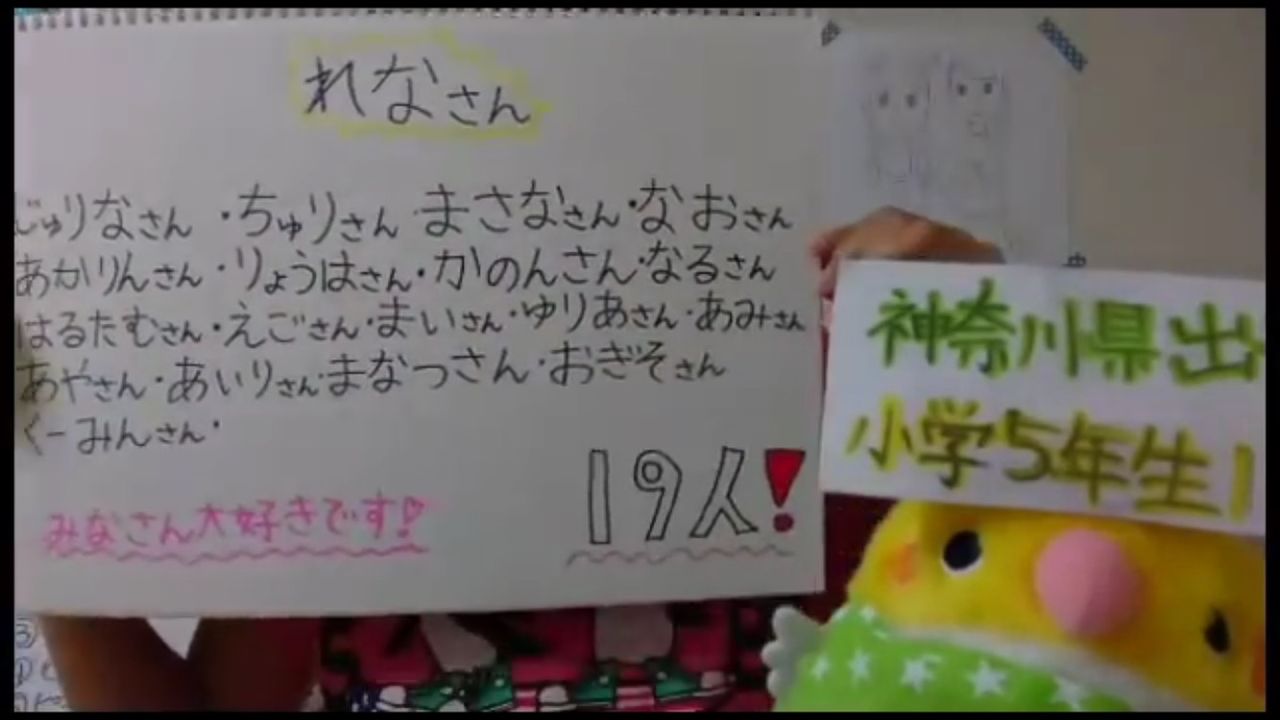 れなさん
じゅりなさん・ちゅりさん・まさなさん・なおさん
あかりんさん・りょうはさん・かのんさん・なるさん
はるたむさん・えごさん・まいさん・ゆりあさん・あみさん
あやさん・あいりさん・まなつさん・おぎそさん
くーみんさん・
みなさん大好きです!
19人!
神奈川県出
小学5年生